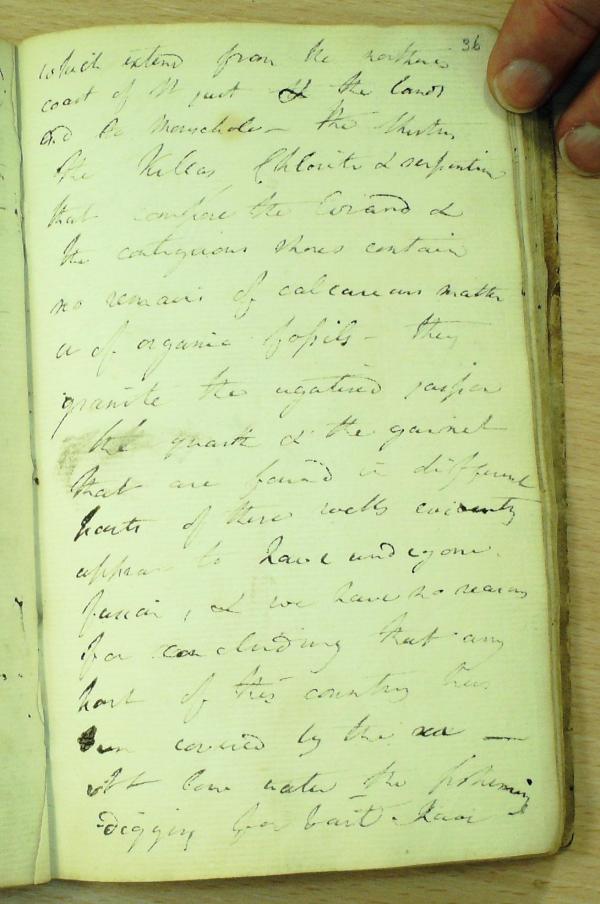 36
which extend from the northern
coast of St just to the lands
and to Marychole – the Shistus
the Killas Chlorite & serpentine
that compose the Island &
the contiguous shores contain
no remains of calcareous matter
or of organic fossils – they
granite the agatised jasper
the quartz & the garnet
that are found in different
parts of these rocks evidently
appear to have undergone
fusion, & we have no reason
for concluding that any
part of this country has
been covered by the sea —
At low water the fishermen
digging for bait have